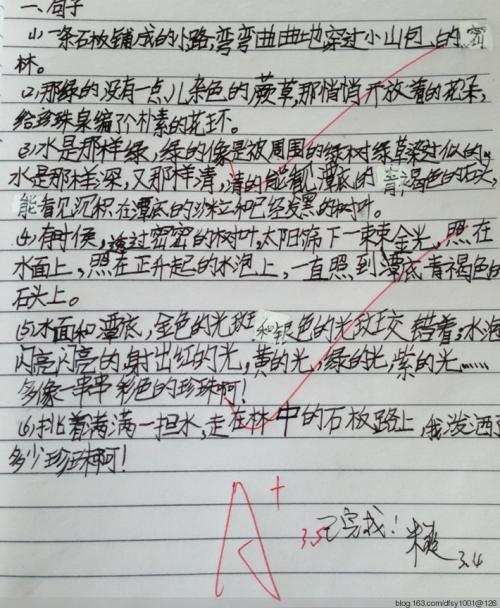 一、句子
(1)一条石板铺成的小路,弯弯曲曲地穿过小山包的密
林。
(2)那绿的没有一点儿杂色的蕨草,那悄悄开放着的花朵,
给珍珠泉编了个朴素的花环。
(3)水是那样绿,绿的像是被周围的绿树绿草染过似的,
水是那样深,又那样清,清的能看见潭底的青褐色的石头,
能看见沉积在潭底的沙粒和已经发黑的树叶。
(4)有时候,透过密密的树叶,太阳筛下一束束金光,照在
水面上,照在正升起的水泡上,一直照到潭底青褐色的
石头上。
(5)水面和潭底,金色的光斑和银色的光斑交错着;水泡
闪亮闪亮的,射出红的光,黄的光,绿的光,紫的光……
多像一串串彩色的珍珠啊!
(6)挑着满满一担水,走在林中的石板路上,我泼洒了
多少珍珠啊!
A+
3.5 已完成!
3.4
blog.163.com/dfsy1001@126